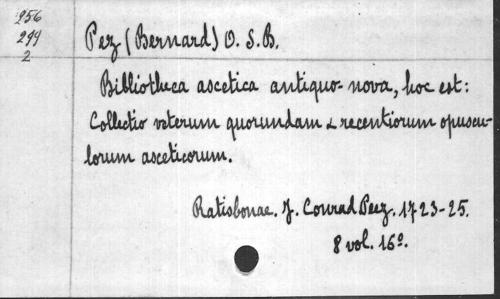 256
299
2
Pez (Bernard) O. S. B.
Bibliotheca ascetica antiquo-nova, hoc est:
Collectio veterum quorundam & recentiorum opuscu-
lorum asceticorum.
Ratisbonae. J. Conrad Peez. 1723-25.
8 vol. 16º.